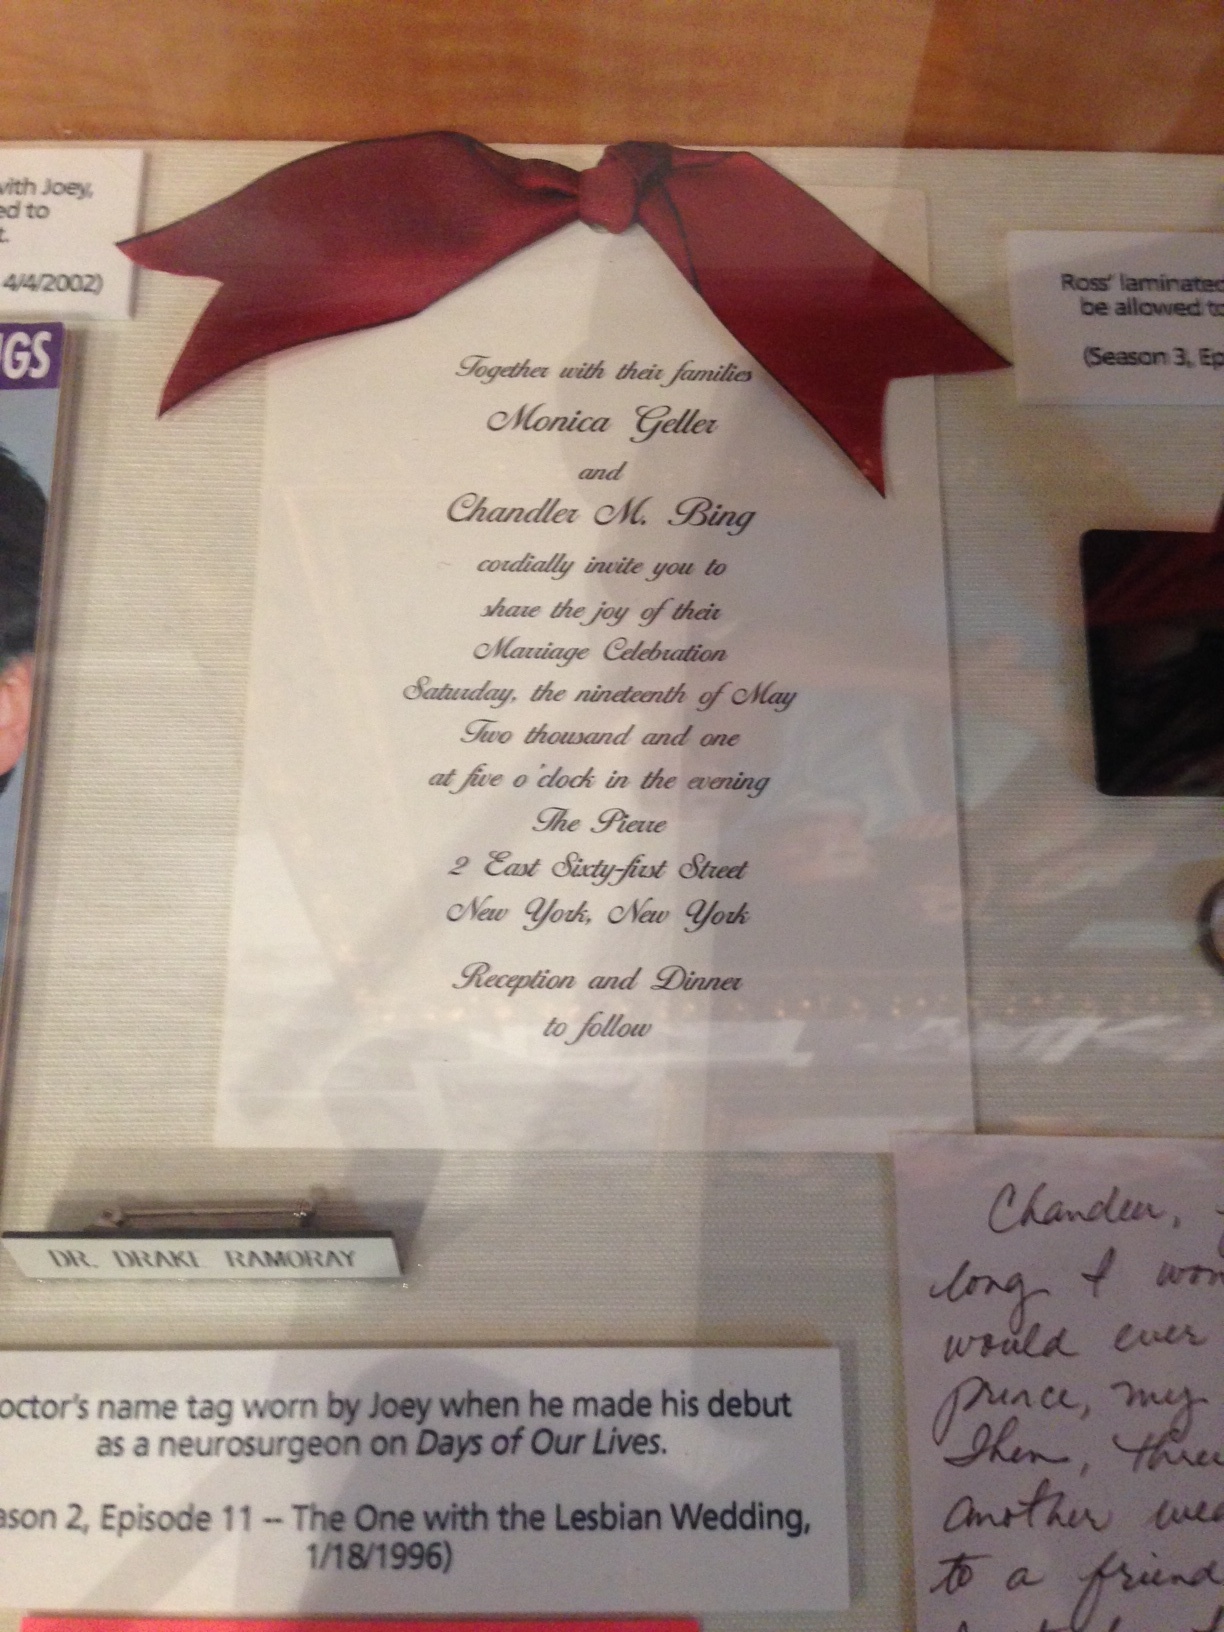 with Joey,
ed to
t.
4/4/2002)
GS
Together with their families
Monica Geller
and
Chandler M. Bing
cordially invite you to
share the joy of their
Marriage Celebration
Saturday, the nineteenth of May
Two thousand and one
at five o'clock in the evening
The Pierre
2 East Sixty-first Street
New York, New York
Reception and Dinner
to follow
Ross' laminated
be allowed to
(Season 3, Ep
DR. DRAKE RAMORAY
octor's name tag worn by Joey when he made his debut
as a neurosurgeon on Days of Our Lives.
ason 2, Episode 11 -- The One with the Lesbian Wedding,
1/18/1996)
Chandler,
long I won
would ever
prince, my
Then, three
another wed
to a friend